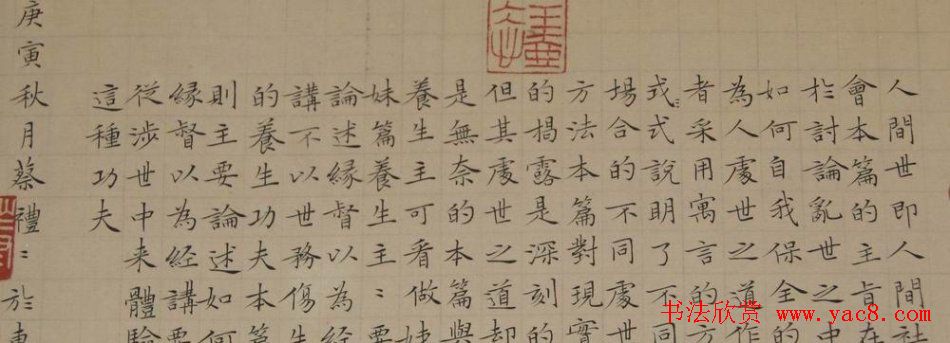 人間世即人間社
會本篇的主旨在
於討論亂世之中
如何自我保全的
為人處世之道作
者采用寓言的方
式式說明了不同
場合的不同處世
方法本篇對現實
的揭露是深刻的
但其處世之道却
是無奈的本篇與
養生主可看做姊
妹篇養生主〻要
論述緣督以為經
講不以世務傷生
的養生功夫本篇
則主要論述如何
緣督以為經講要
從涉世中来體驗
這種功夫
庚寅秋月蔡禮〻於東
书法欣赏
www.yac8.com